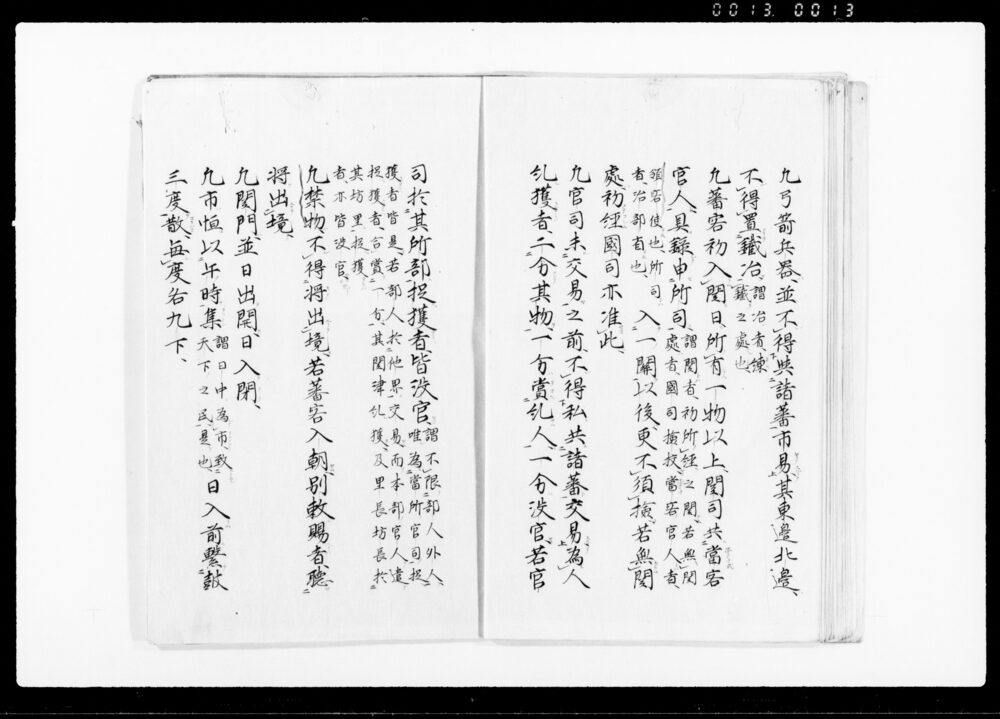 0013 0013
凡弓箭兵器並不得與諸蕃市易其東邊北邊
不得置鐵冶謂冶者練鐵之處也
凡蕃客初入関日所有一物以上関司共當客
官人具録申所司謂関者初所經之関若無関處者國司檢挍當客官人者
領客使也所司者治部省也入一關以後更不須撿若無関
處初經國司亦准此
凡官司未交易之前不得私共諸蕃交易為人
糺獲者二分其物一分賞糺人一分没官若官
司於其所部捉獲者皆没官謂不限部人外人唯為當所官司捉
獲者皆是若部人於他界交易而本部官人遣
捉獲者合賞一分其関津糺獲及里長坊長於
其坊里捉獲者亦皆没官
凡禁物不得将出境若蕃客入朝別敕賜者聴
将出境
凡関門並日出開日入閇
凡市恒以午時集謂日中為市致天下之民是也日入前撃皷
三度散毎度各九下